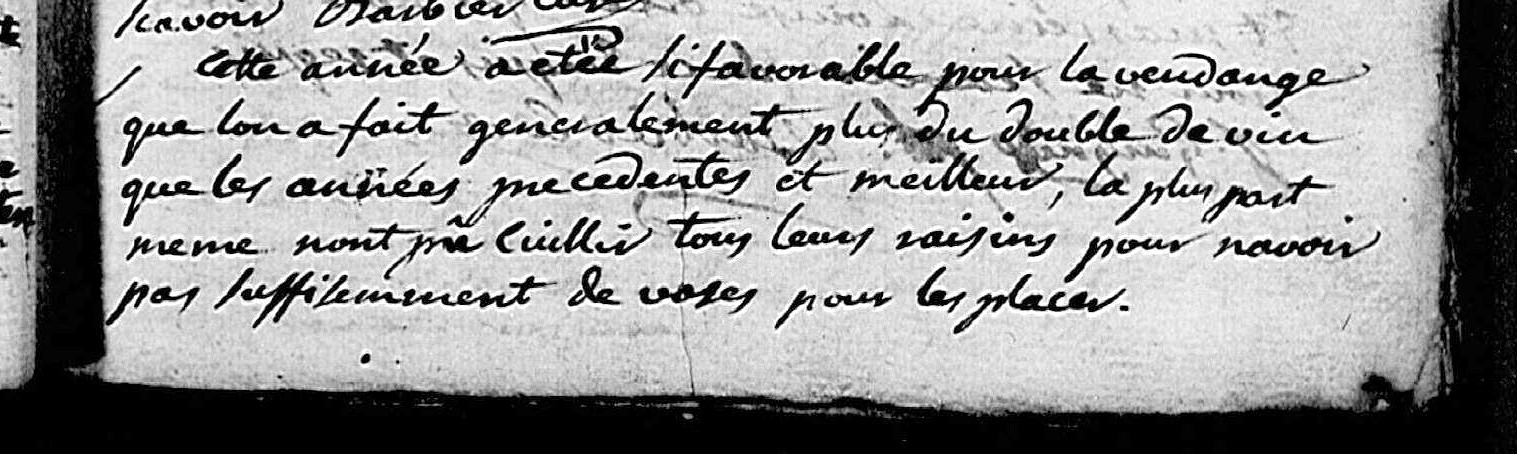 scavoir Barbier curé
cette année a etée si favorable pour la vendange
que lon a fait generalement plus du double de vin
que les années precedentes et meilleur, la plus part
meme nont pû Cuillir tous leurs raisins pour navoir
pas suffisemment de vases pour les placer.